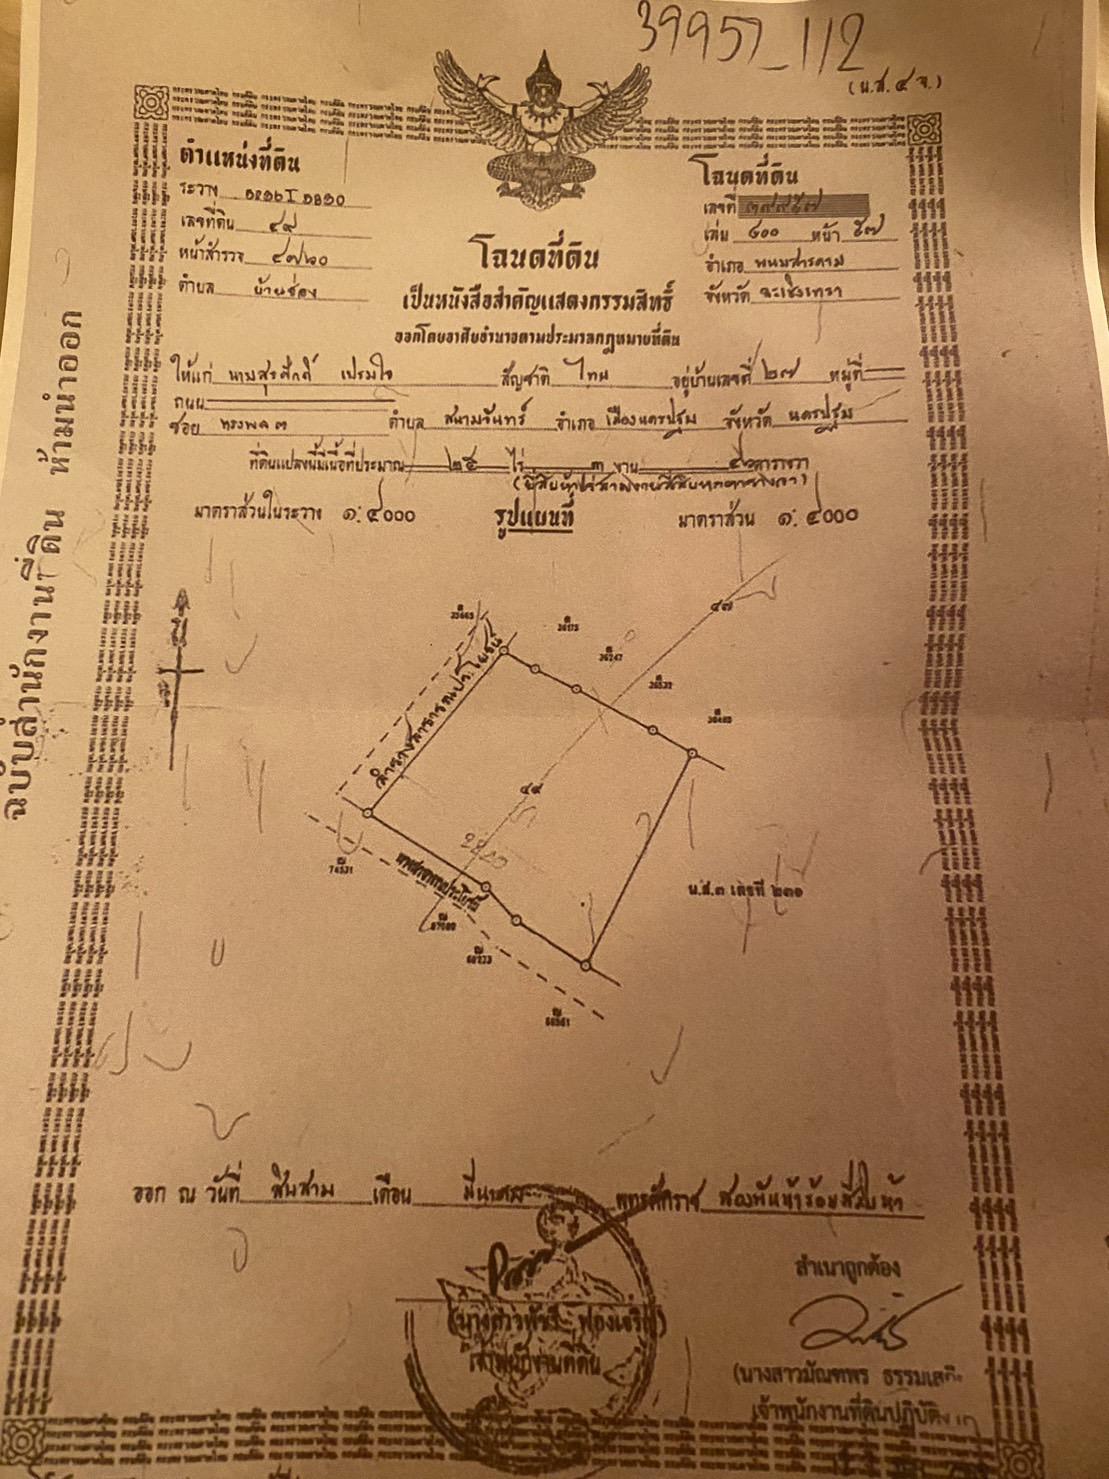 39957_112
(น.ส.๔ จ.)
ตำแหน่งที่ดิน
ระวาง
เลขที่ดิน ๔๙
หน้าสำรวจ ๔๗๒๐
ตำบล บ้านซ่อง
โฉนดที่ดิน
เลขที่ ๓๙๙๕๗
เล่ม ๔๐๐ หน้า ๕๗
อำเภอ พนมสารคาม
จังหวัด ฉะเชิงเทรา
โฉนดที่ดิน
เป็นหนังสือสำคัญแสดงกรรมสิทธิ์
ออกโดยอาศัยอำนาจตามประมวลกฎหมายที่ดิน
ให้แก่ นายสุรศักดิ์ เปรมใจ สัญชาติ ไทย อยู่บ้านเลขที่ ๒๗ หมู่ที่
ถนน
ซอย ทรงพล ๓ ตำบล สนามจันทร์ อำเภอ เมืองนครปฐม จังหวัด นครปฐม
ที่ดินแปลงนี้มีเนื้อที่ประมาณ ๒๕ ไร่ ๓ งาน ๔๖ ตารางวา
(ยี่สิบห้าไร่สามงานสี่สิบหกตารางวา)
มาตราส่วนในระวาง ๑:๔๐๐๐ รูปแผนที่ มาตราส่วน ๑:๔๐๐๐
เหนือ
๔๗
ลำรางสาธารณประโยชน์
๔๙
ทางสาธารณประโยชน์
น.ส.๓ เลขที่ ๒๓๑
ฉบับสำนักงานที่ดิน ห้ามนำออก
ออก ณ วันที่ สิบสาม เดือน มีนาคม พุทธศักราช สองพันห้าร้อยสี่สิบห้า
สำเนาถูกต้อง
เจ้าพนักงานที่ดิน
(นางสาวมัณฑพร
เจ้าพนักงานที่ดินปฏิบัติงาน